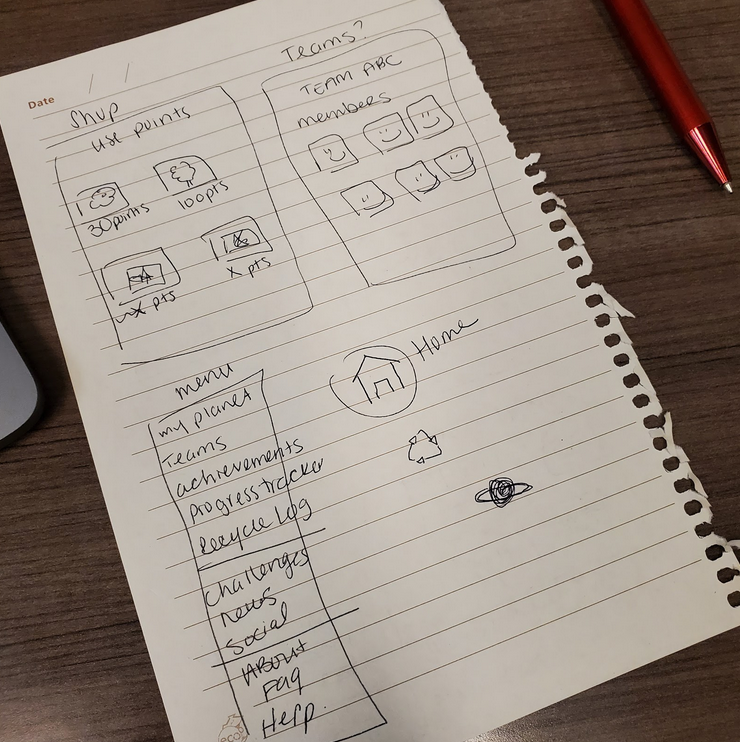 Date / /
Shop
use points
30 points
100 pts
x pts
x pts
Teams?
TEAM ABC
members
Home
menu
my planet
Teams
achievements
progress tracker
Recycle Log
challenges
news
Social
ABOUT
FAQ
Help.
eco